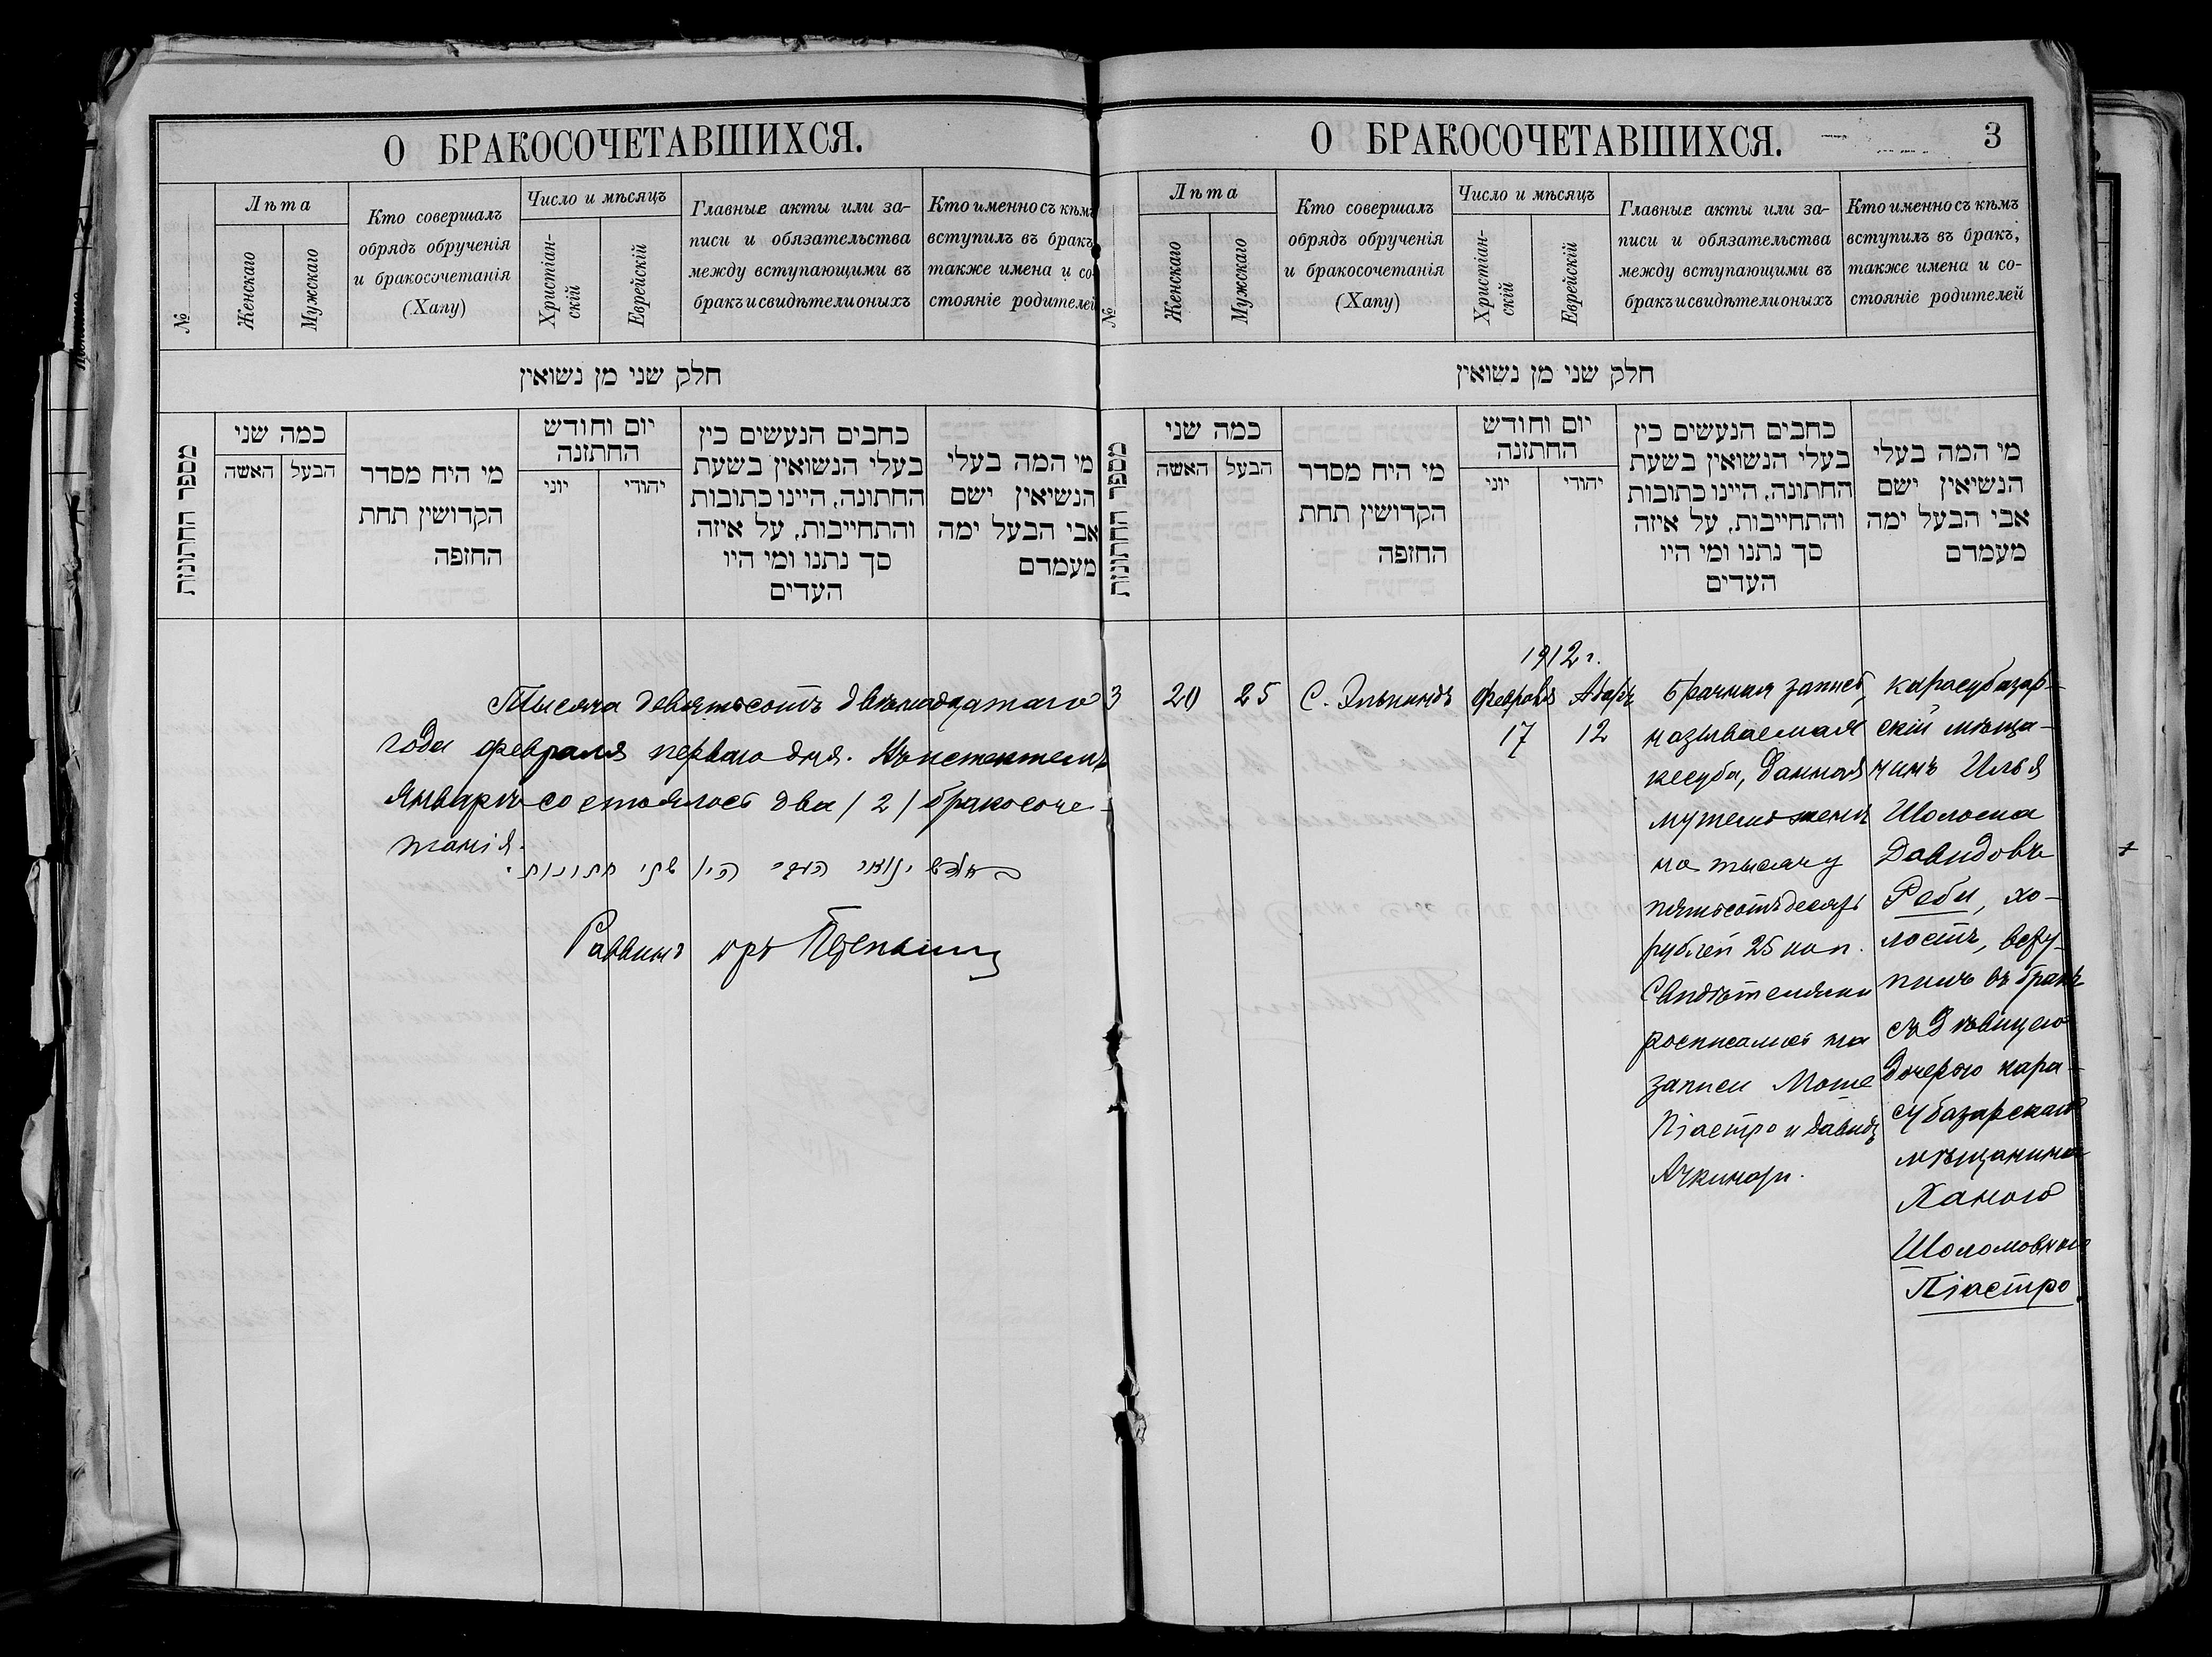 О БРАКОСОЧЕТАВШИХСЯ.
№
Лѣта
Женскаго
Мужскаго
Кто совершалъ
обрядъ обрученія
и бракосочетанія
(Хапу)
Число и мѣсяцъ
Христіан-
скій
Еврейскій
Главные акты или за-
писи и обязательства
между вступающими въ
бракъ и свидѣтели оныхъ
Кто именно съ кѣмъ
вступилъ въ бракъ
также имена и со-
стояніе родителей
חלק שני מן נשואין
מספר החתונות
כמה שני
האשה
הבעל
מי היח מסדר
הקדושין תחת
החזפה
יום וחודש
החתזנה
יוני
יהודי
כחבים הנעשים כין
בעלי הנשואין בשעת
החתונה, היינו כתובות
והתחייבות, על איזה
סך נתנו ומי היו
העדים
מי המה בעלי
הנשיאין ישם
אבי הבעל ימה
מעמדם
Тысяча девятьсотъ двѣнадцатаго
года февраля перваго дня. Въ истектемъ
Январѣ состоялось два /2/ бракосоче-
танія.
היו שתי חתונות.
Раввинъ
О БРАКОСОЧЕТАВШИХСЯ.
3
№
Лѣта
Женскаго
Мужскаго
Кто совершалъ
обрядъ обрученія
и бракосочетанія
(Хапу)
Число и мѣсяцъ
Христіан-
скій
Еврейскій
Главные акты или за-
писи и обязательства
между вступающими въ
бракъ и свидѣтели оныхъ
Кто именно съ кѣмъ
вступилъ въ бракъ,
также имена и со-
стояніе родителей
חלק שני מן נשואין
מספר החתונות
כמה שני
האשה
הבעל
מי היח מסדר
הקדושין תחת
החזפה
יום וחודש
החתזנה
יוני
יהודי
כחבים הנעשים כין
בעלי הנשואין בשעת
החתונה, היינו כתובות
והתחייבות, על איזה
סך נתנו ומי היו
העדים
מי המה בעלי
הנשיאין ישם
אבי הבעל ימה
מעמדם
1912 г.
3
20
25
С. Элькиндъ
Февраля
17
Адаръ
12
Брачная запись,
называемая
кесуба, данная
мужемъ женѣ
на тысячу
пятьсотъ десять
рублей 25 коп.
Свидѣтелями
росписались на
записи Моше
Піастро и Давидъ
Ачкинази.
Карасубазар-
скій мѣща-
нинъ Илья
Шолома
Давидовъ
Реби, хо-
лостъ, всту-
пилъ въ бракъ
съ Дѣвицею
дочерью кара-
субазарскаго
мѣщанина
Ханою
Шоломовною
Піастро.